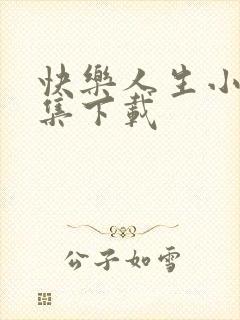 快樂人生小
集下載
公子如雪